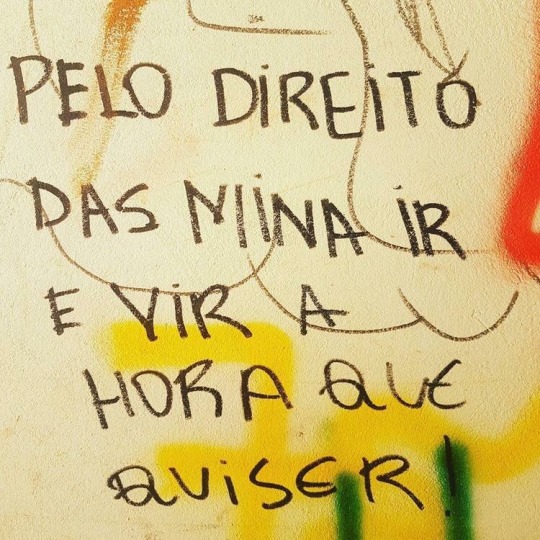 PELO DIREITO
DAS MINA IR
E VIR A
HORA QUE
QUISER!